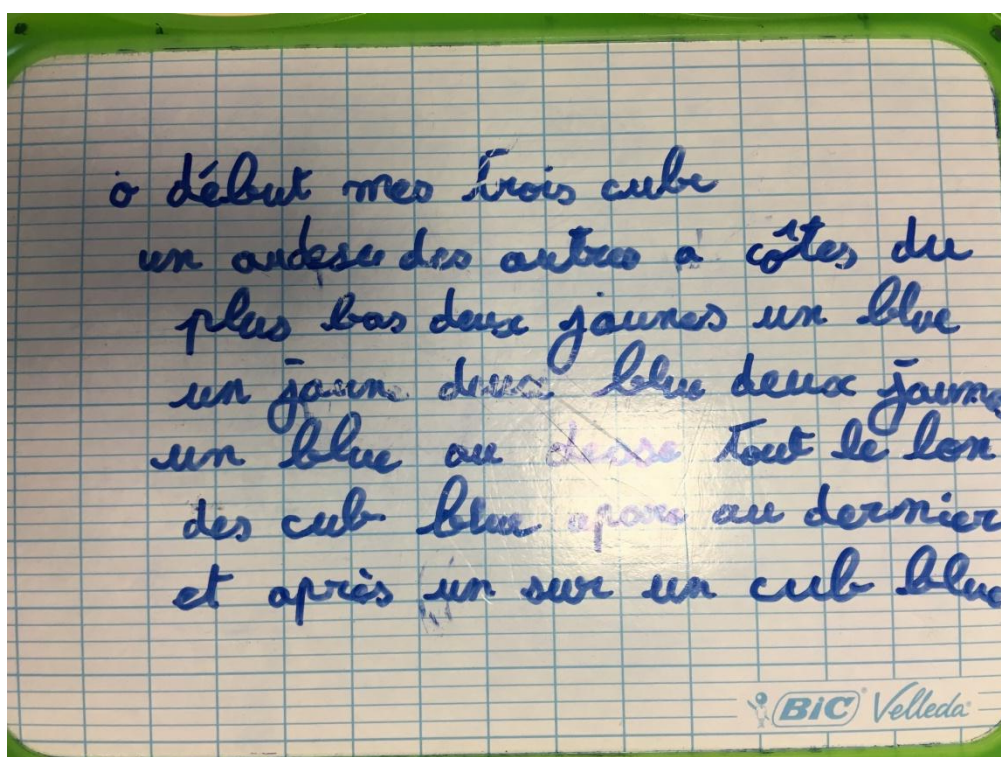 o début mes trois cube
un audesu des autres a côtes du
plus bas deux jaunes un blue
un jaune deux blue deux jaune
un blue au desse tout le lon
des cub blue apare au dernier
et après un sur un cub blue
BiC Velleda